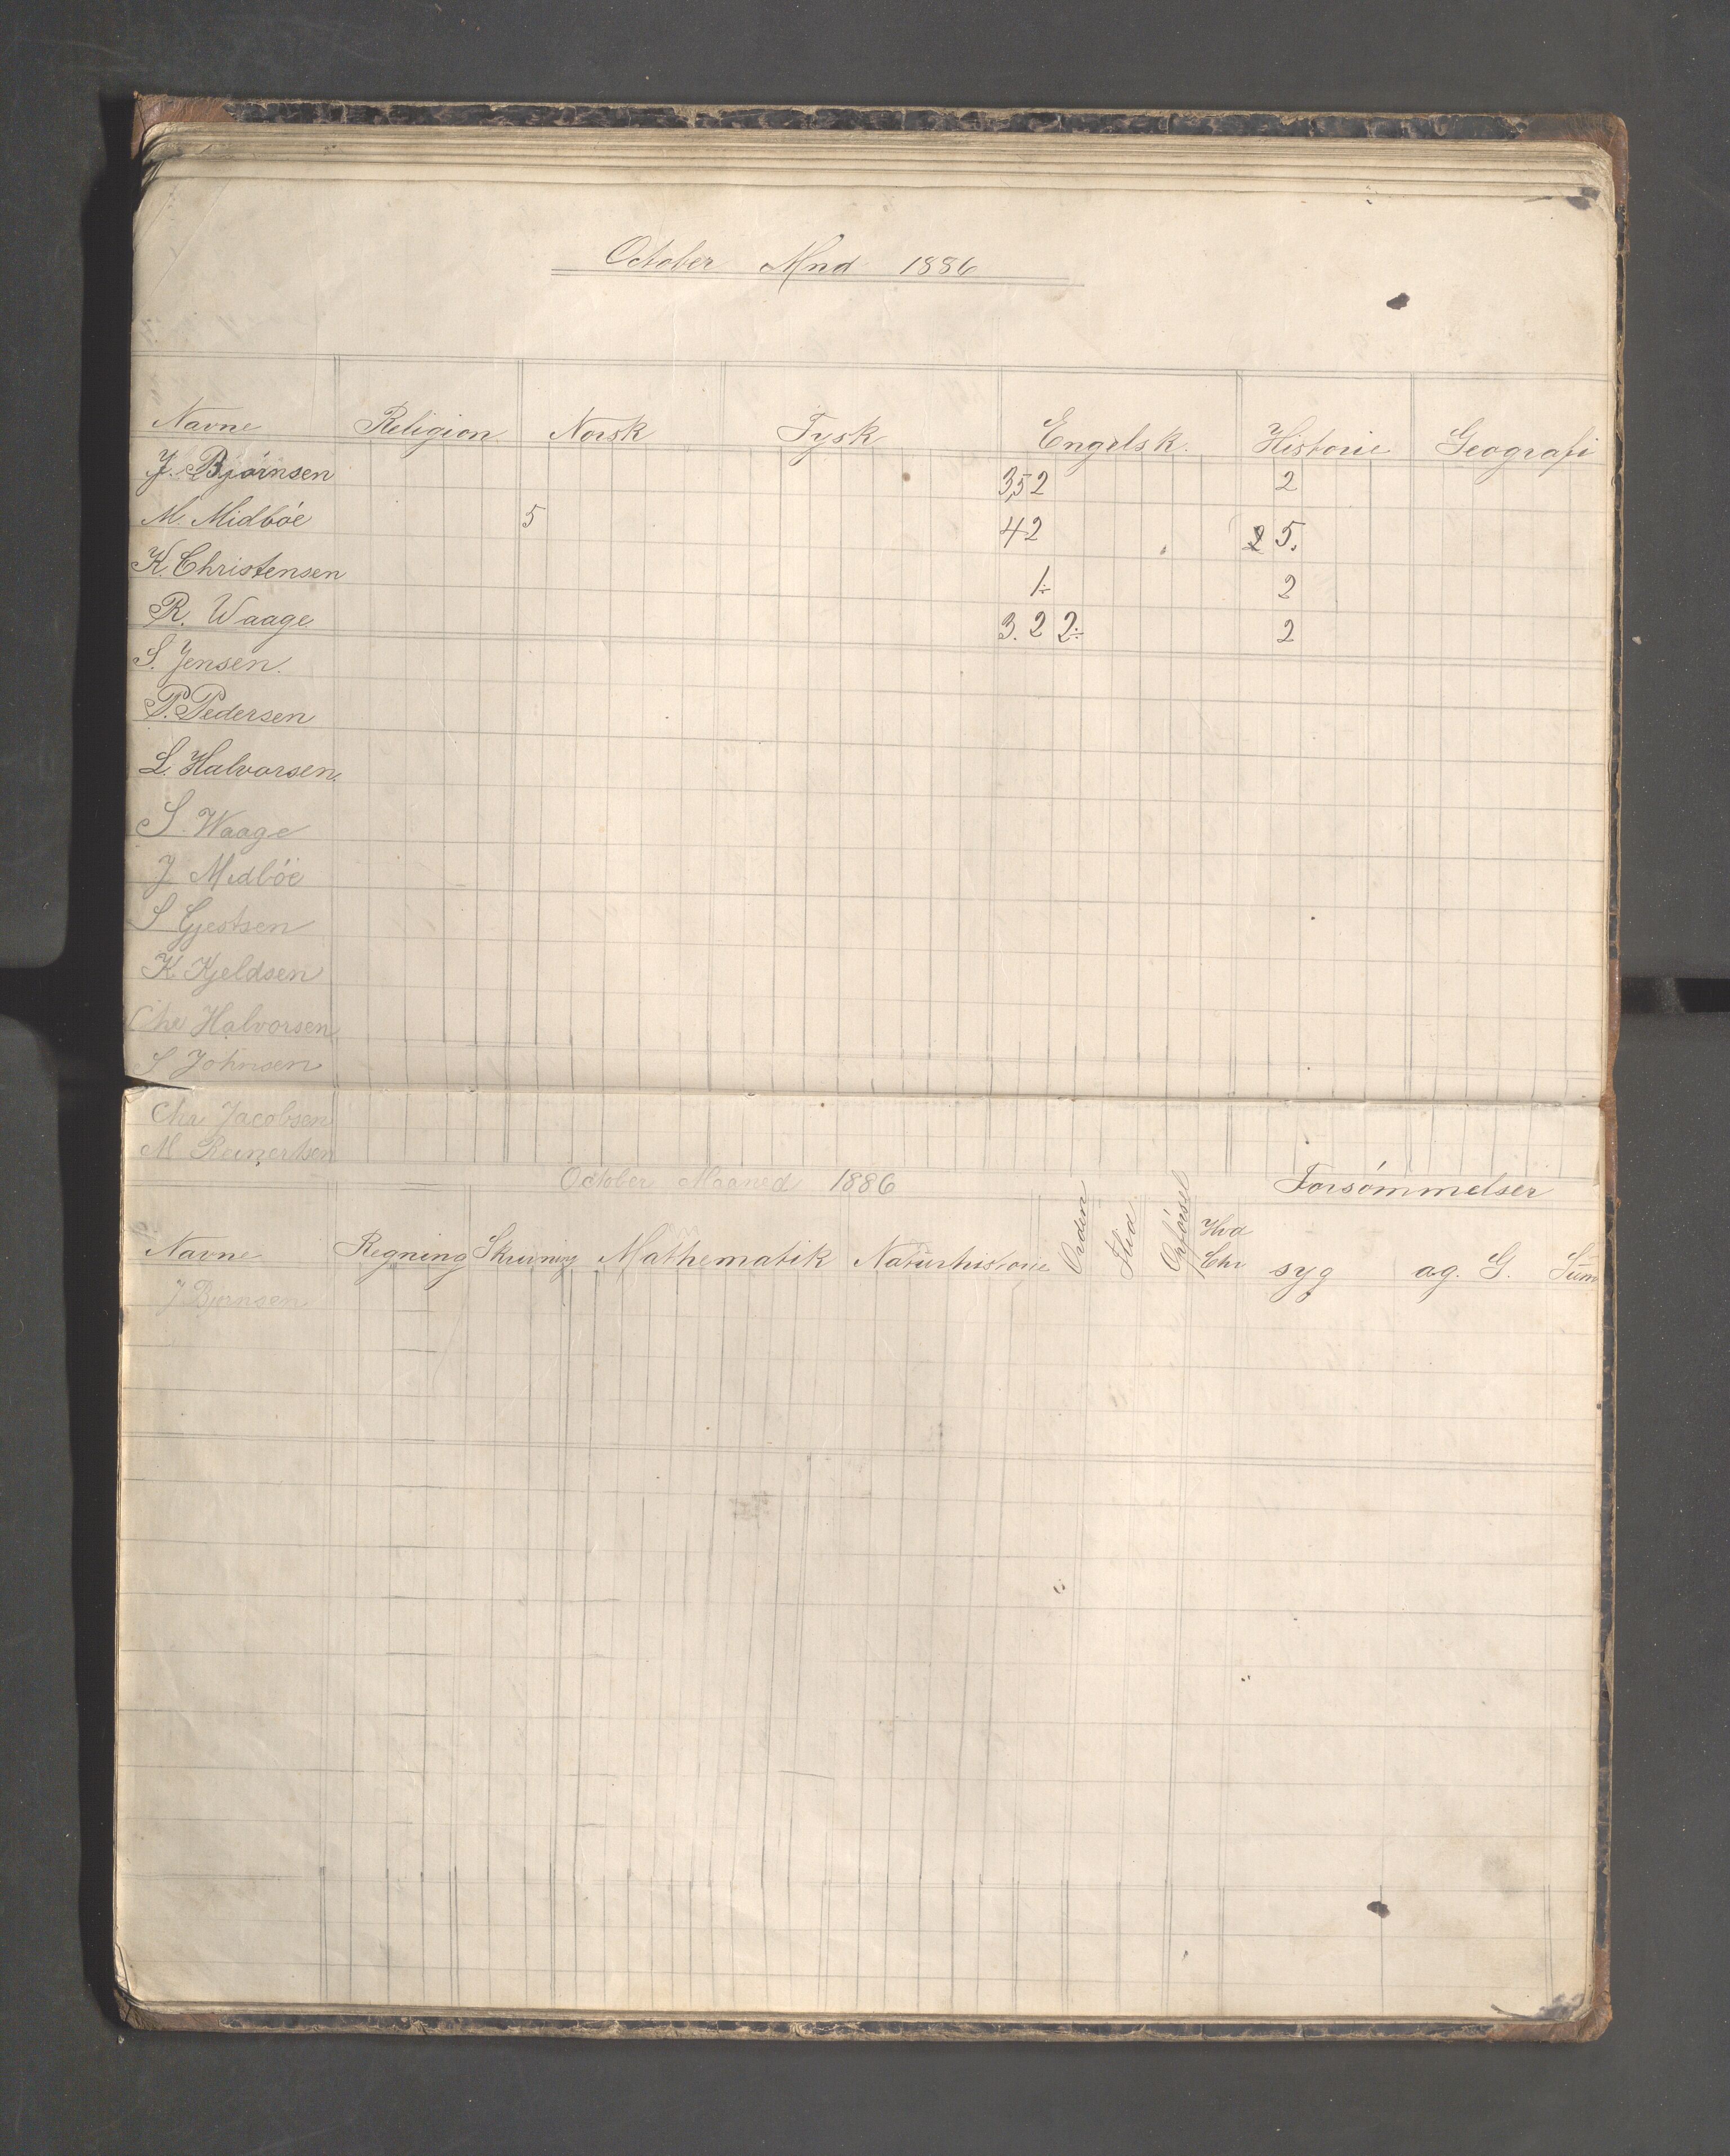 October Mnd 1886
Navne Religion Norsk Tysk Engelsk. Historie Geografi
J. Bjørnsen 3,5 2 2
M. Midbøe 5 4 2 2 5.
K. Christensen 1÷ 2
R. Waage 3. 2 2÷ 2
S. Jensen.
P. Pedersen
L. Halvorsen.
S. Waage
J Midbøe
S Gjestsen
K. Kjeldsen
Chr Halvorsen
S Johnsen
Chr Jacobsen
M Reinertsen
October Maaned 1886 Forsømmelser
Navne Regning Skrivning Mathematik Naturhistorie Orden Flid Opførsel Hvd Chr syg ag. G. Sum
J Bjørnsen